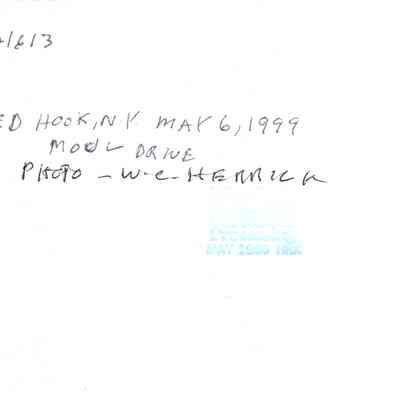 1613
ED HOOK, NY MAY 6, 1999
DRIVE
PHOTO - W.C. HERRICK
MAY 1999